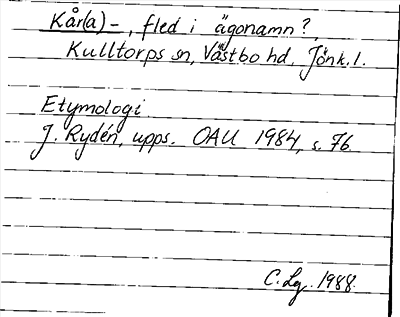 Kår(a)-, fled i ägonamn?,
Kulltorps sn, Västbo hd, Jönk. l.
Etymologi
J. Rydén, upps. OAU 1984, s. 76.
C. Lg. 1988.